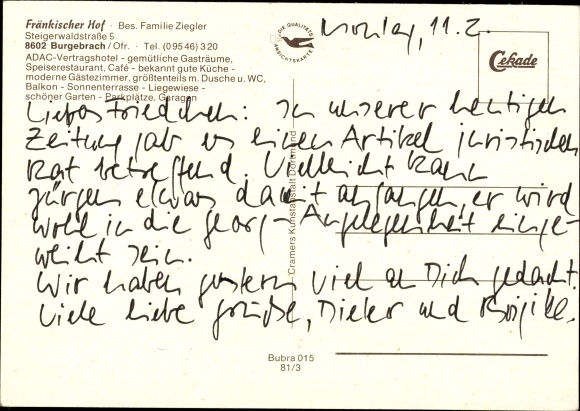 Fränkischer Hof · Bes. Familie Ziegler
Steigerwaldstraße 5
8602 Burgebrach/Ofr. · Tel. (09546) 320
ADAC-Vertragshotel - gemütliche Gasträume,
Speiserestaurant, Café - bekannt gute Küche -
moderne Gästezimmer, größtenteils m. Dusche u. WC,
Balkon - Sonnenterrasse - Liegewiese -
schöner Garten - Parkplätze, Garagen
DIE QUALITÄTS
ANSICHTSKARTE
Cekade
Montag, 11.2.
Liebes Friedchen: In unserer heutigen
Zeitung gab es einen Artikel juristischen
Rat betreffend. Vielleicht kann
Jürgen etwas damit anfangen, er wird
wohl in die Georg-Angelegenheit einge-
weiht sein.
Wir haben gestern viel an Dich gedacht.
Viele liebe Grüße, Dieter und Brigitte.
Cramers Kunstanstalt Dortmund
Bubra 015
81/3